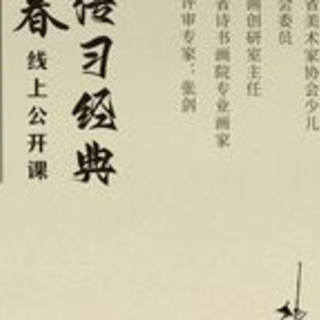 省美术家协会少儿
会委员
画创研室主任
省诗书画院专业画家
评审专家：张剑
习经典
春
线上公开课